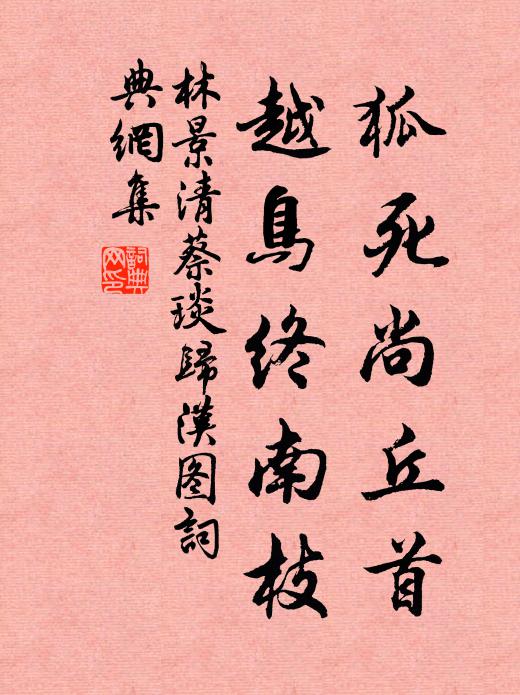 狐死尚丘首
越鳥終南枝
林景清蔡琰歸漢图詞
典網集
詞典
网印